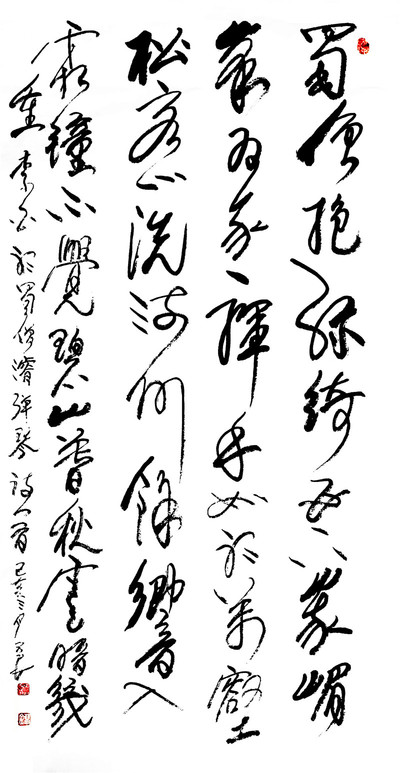 蜀僧抱綠綺西下峩嵋
峯為我一揮手如聽萬壑
松客心洗流水餘響入
霜鐘不覺碧山暮秋雲暗幾
重 李白聽蜀僧濬彈琴詩一首 己亥三月